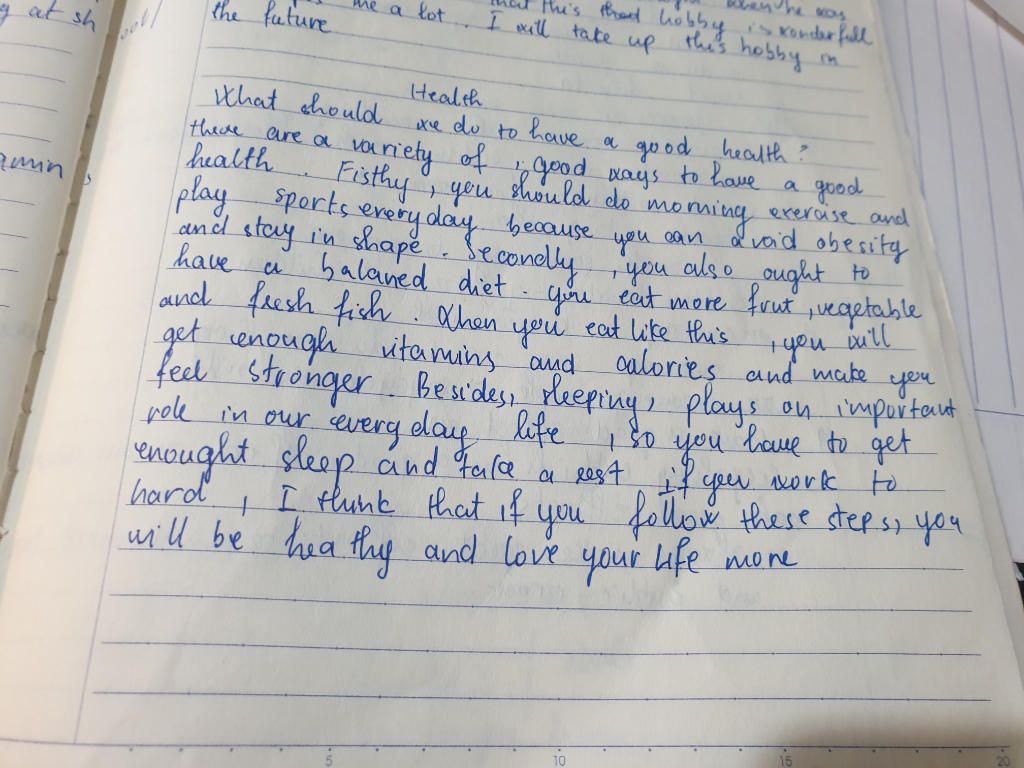 g at sh
me a lot. that this hobby is wonderfull
the future I will take up this hobby in
amin
Health
What should we do to have a good health?
there are a variety of good ways to have a good
health. Fisthy, you should do morning exercise and
play sports everyday because you can avoid obesity
and stay in shape. Secondly, you also ought to
have a balaned diet. you eat more frut, vegetable
and fresh fish. When you eat like this, you will
get enough vitamins and calories and make you
feel stronger. Besides, sleeping, plays an important
role in our everyday life, so you have to get
enought sleep and take a rest if you work to
hard, I think that if you follow these steps, you
will be heathy and love your life more
5 10 15 20